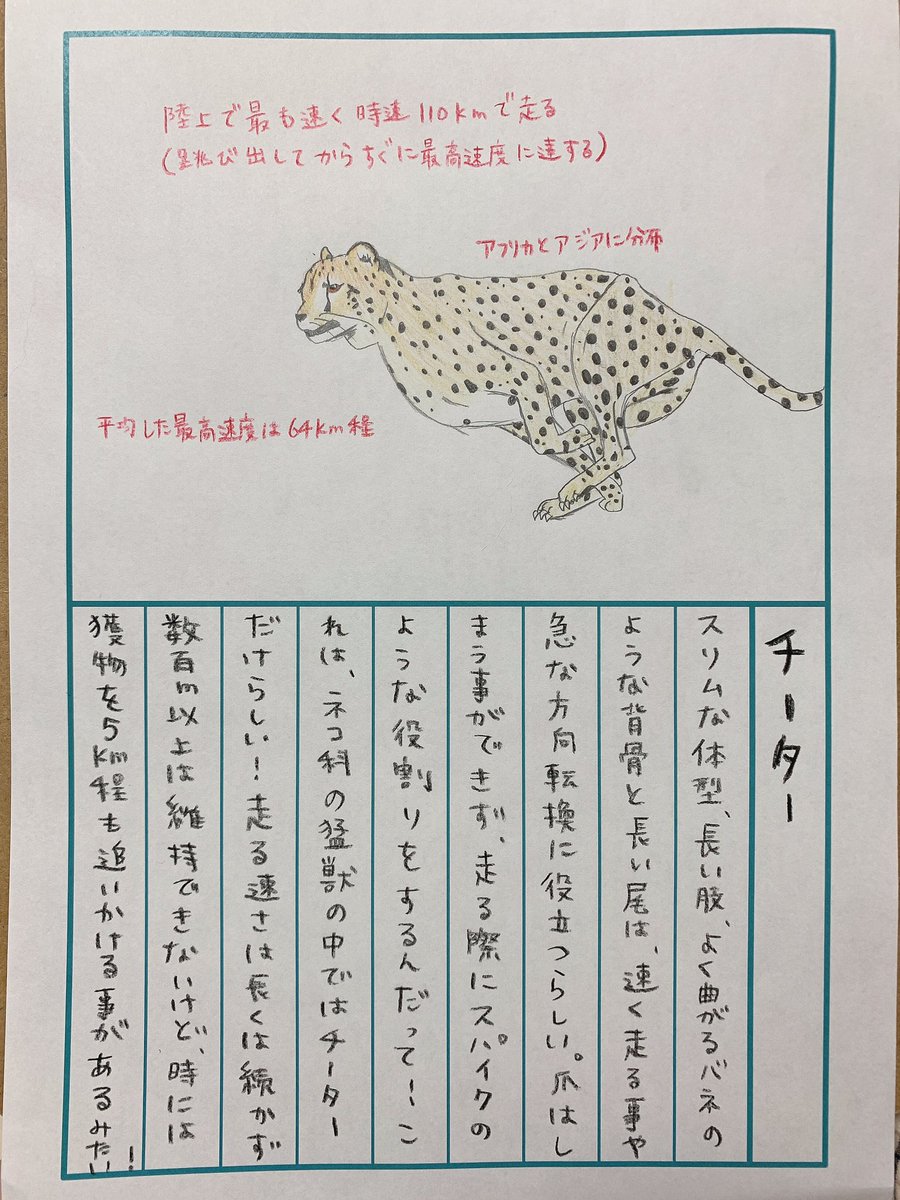 陸上で最も速く時速110kmで走る
(跳び出してからすぐに最高速度に達する)
アフリカとアジアに分布
平均した最高速度は64km程
チーター
スリムな体型、長い肢、よく曲がるバネの
ような背骨と長い尾は、速く走る事や
急な方向転換に役立つらしい。爪はし
まう事ができず、走る際にスパイクの
ような役割りをするんだって!こ
れは、ネコ科の猛獣の中ではチーター
だけらしい!走る速さは長くは続かず
数百m以上は維持できないけど、時には
獲物を5km程も追いかける事があるみたい!